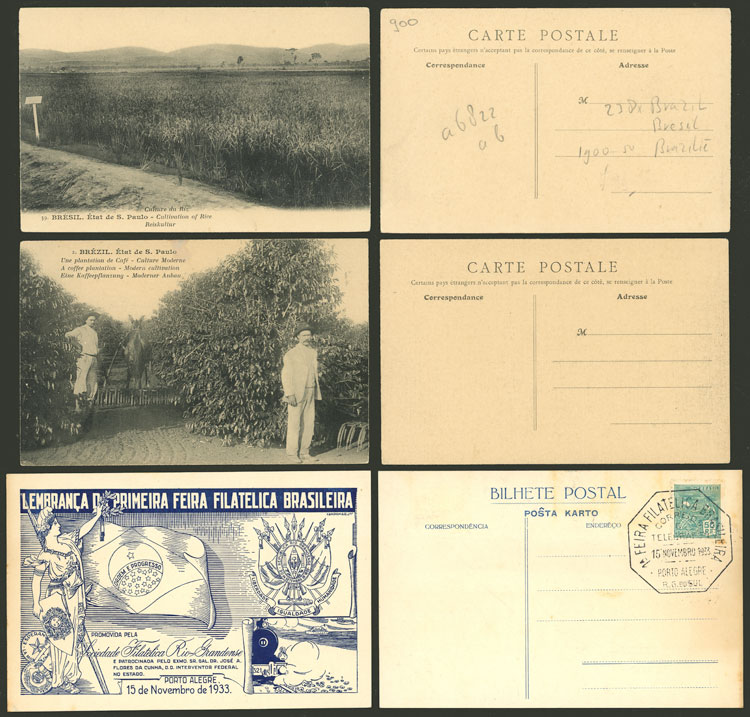 Culture du Riz
59. BRÉSIL. État de S. Paulo - Cultivation of Rice
Reiskultur
900
CARTE POSTALE
Certains pays étrangers n'acceptant pas la correspondance de ce côté, se renseigner à la Poste
Correspondance
Adresse
M
a6822
a6
Brazil
Bresil
1900-50 Brazilië
2. BRÉZIL. État de S. Paulo
Une plantation de Café - Culture Moderne
A coffer plantation - Modern cultivation
Eine Kaffeepflanzung - Moderner Anbau
CARTE POSTALE
Certains pays étrangers n'acceptant pas la correspondance de ce côté, se renseigner à la Poste
Correspondance
Adresse
M
LEMBRANÇA DA PRIMEIRA FEIRA FILATELICA BRASILEIRA
ORDEM E PROGRESSO
IGUALDADE
PROMOVIDA PELA
Sociedade Filatelica Rio-Grandense
E PATROCINADA PELO EXMO. SR. GAL. DR. JOSÉ A.
FLORES DA CUNHA, D.D. INTERVENTOR FEDERAL
NO ESTADO.
PORTO ALEGRE,
15 de Novembro de 1933.
BILHETE POSTAL
POŜTA KARTO
CORRESPONDÊNCIA
ENDEREÇO
1A. FEIRA FILATELICA BRASILEIRA
15 NOVEMBRO 1933
- PORTO ALEGRE -
R. G. DO SUL